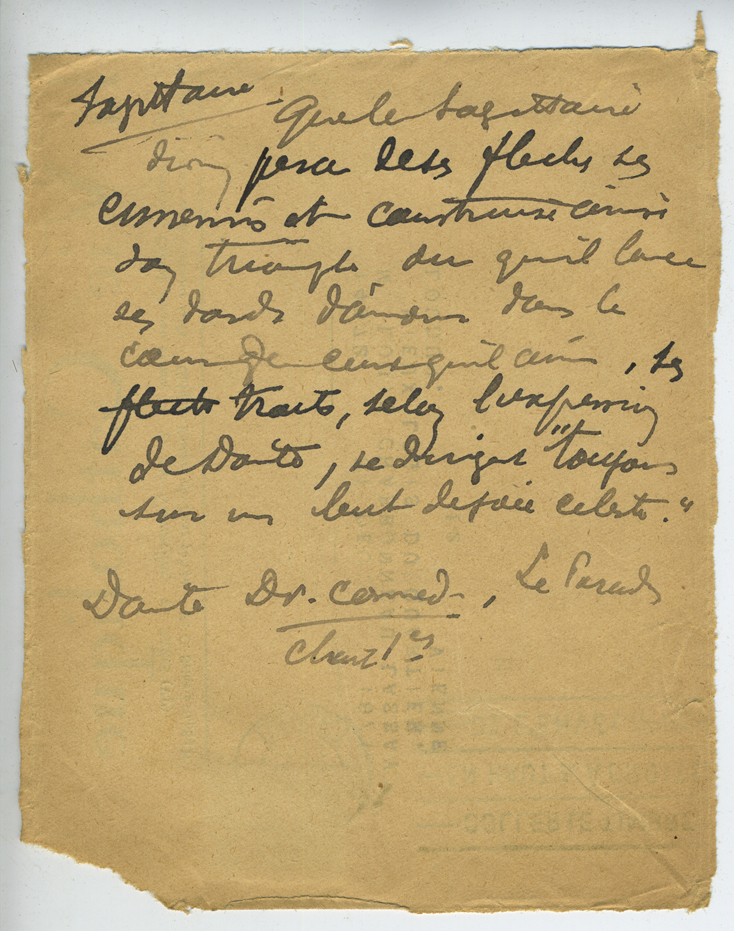 Sagittaire
Que le Sagittaire
divin perce de ses fleches ses
ennemis et construise ainsi
son triangle ou qu'il lance
ses dards d'amour dans le
coeur de ceux qu'il aime, ses
fleches traits, selon l'expression
de Dante, se dirigent "toujours
sur un but de joie celeste."
Dante Div. Comed., Le Paradis
Chant 1er